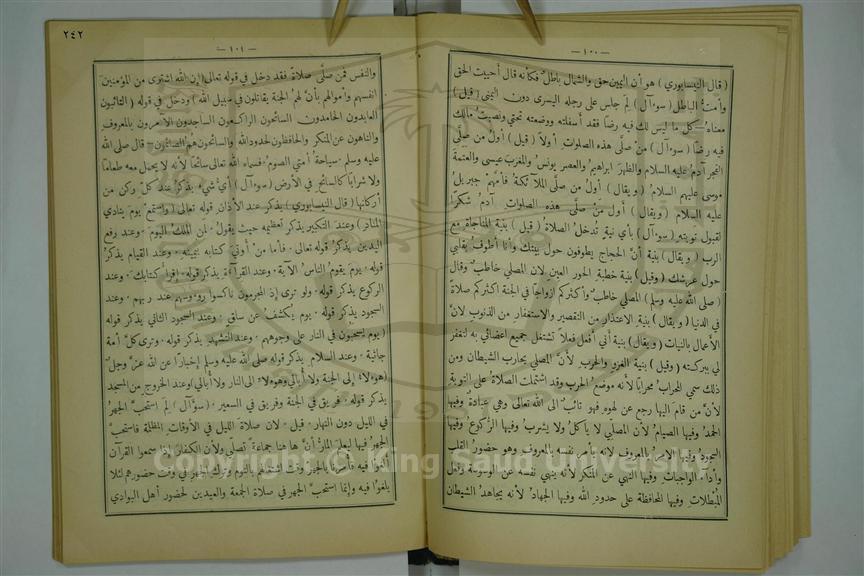 — ١٠٠ —
( قال النيسابوري ) هو أن اليمين حق والشمال باطل فكأنه قال أحييت الحق
وأمتُّ الباطل ( سوءآل ) لم جلس على رجله اليسرى دون اليمنى ( قيل )
معناه كل ما ليس لك فيه رضًا فقد أسفلته ووضعته تحتي ونصبت مالك
فيه رضا ( سوءآل ) من صلى هذه الصلوات أولاً ( قيل ) أول من صلى
الفجر آدم عليه السلام والظهر ابراهيم والعصر يونس والمغرب عيسى والعتمة
موسى عليهم السلام ( ويقال ) أول من صلى الملائكة فأمهم جبريل
عليه السلام ( ويقال ) أول من صلى هذه الصلوات آدم شكرًا
لقبول توبته ( سوءآل ) بأي نية تدخل الصلاة ( قيل ) بنية المناجاة مع
الرب ( ويقال ) بنية أن الحجاج يطوفون حول بيتك وأنا أطوف بقلبي
حول عرشك ( وقيل ) بنية خطبة الحور العين لان المصلي خاطب وقال
( صلى الله عليه وسلم ) المصلي خاطب وأكثركم ازواجًا في الجنة اكثركم صلاة
في الدنيا ( ويقال ) بنية الاعتذار من التقصير والاستغفار من الذنوب لان
الأعمال بالنيات ( ويقال ) بنية أني أفعل فعلاً تشتغل جميع اعضائي به لتغفر
لي ببركته ( وقيل ) بنية الغزو والحرب لأن المصلي يحارب الشيطان ومن
ذلك سمي المحراب محرابًا لأنه موضع الحرب وقد اشتملت الصلاة على التوبة
لأن من قام اليها رجع عن لهوه فهو تائب الى الله تعالى وهي عبادة وفيها
الحمد وفيها الصيام لأن المصلي لا يأكل ولا يشرب وفيها الركوع وفيها
السجود وفيها الامر بالمعروف لانه يأمر نفسه بالمعروف وهو حضور القلب
وأداء الواجبات وفيها النهي عن المنكر لأنه ينهى نفسه عن الوسوسة وفعل
المبطلات وفيها المحافظة على حدود الله وفيها الجهاد لأنه يجاهد الشيطان
٢٤٢
— ١٠١ —
والنفس فمن صلى صلاة فقد دخل في قوله تعالى ( إن الله اشترى من المؤمنين
انفسهم واموالهم بأن لهم الجنة يقاتلون في سبيل الله ) ودخل في قوله ( التائبون
العابدون الحامدون السائحون الراكعون الساجدون الآمرون بالمعروف
والناهون عن المنكر والحافظون لحدود الله والسائحون هم الصائمون قال صلى الله
عليه وسلم سياحة أمتي الصوم فسماه الله تعالى سائحًا لأنه لا يحمل معه طعامًا
ولا شرابًا كالسائح في الأرض ( سوءآل ) أي شيء يذكر عند كل ركن من
أركانها ( قال النيسابوري ) يذكر عند الأذان قوله تعالى ( واستمع يوم ينادي
المناد ) وعند التكبير يذكر تعظيمه حيث يقول لمن الملك اليوم وعند رفع
اليدين يذكر قوله تعالى فأما من أوتي كتابه بيمينه وعند القيام يذكر
قوله يوم يقوم الناس الآية وعند القراءة يذكر قوله اقرأ كتابك وعند
الركوع يذكر قوله ولو ترى إذ المجرمون ناكسوا رؤوسهم عند ربهم وعند
السجود يذكر قوله يوم يكشف عن ساق وعند السجود الثاني يذكر قوله
( يوم يسحبون في النار على وجوههم وعند التشهد يذكر قوله وترى كل أمة
جاثية وعند السلام يذكر قوله صلى الله عليه وسلم إخبارًا عن الله عز وجل
( هؤلاء إلى الجنة ولا أبالي وهؤلاء الى النار ولا أبالي ) وعند الخروج من المسجد
يذكر قوله فريق في الجنة وفريق في السعير ( سوءآل ) لم استحب الجهر
في الليل دون النهار قيل لان صلاة الليل في الأوقات المظلمة فاستحب
الجهر فيها ليعلم المار أن ها هنا جماعة تصلي ولأن الكفار إذا سمعوا القرآن
لغوا فيه فأمرنا بالجهر وقت اشتغالهم بالنوم وترك الجهر في وقت حضورهم لئلا
يلغوا فيه وإنما استحب الجهر في صلاة الجمعة والعيدين لحضور أهل البوادي
Copyright © King Saud University